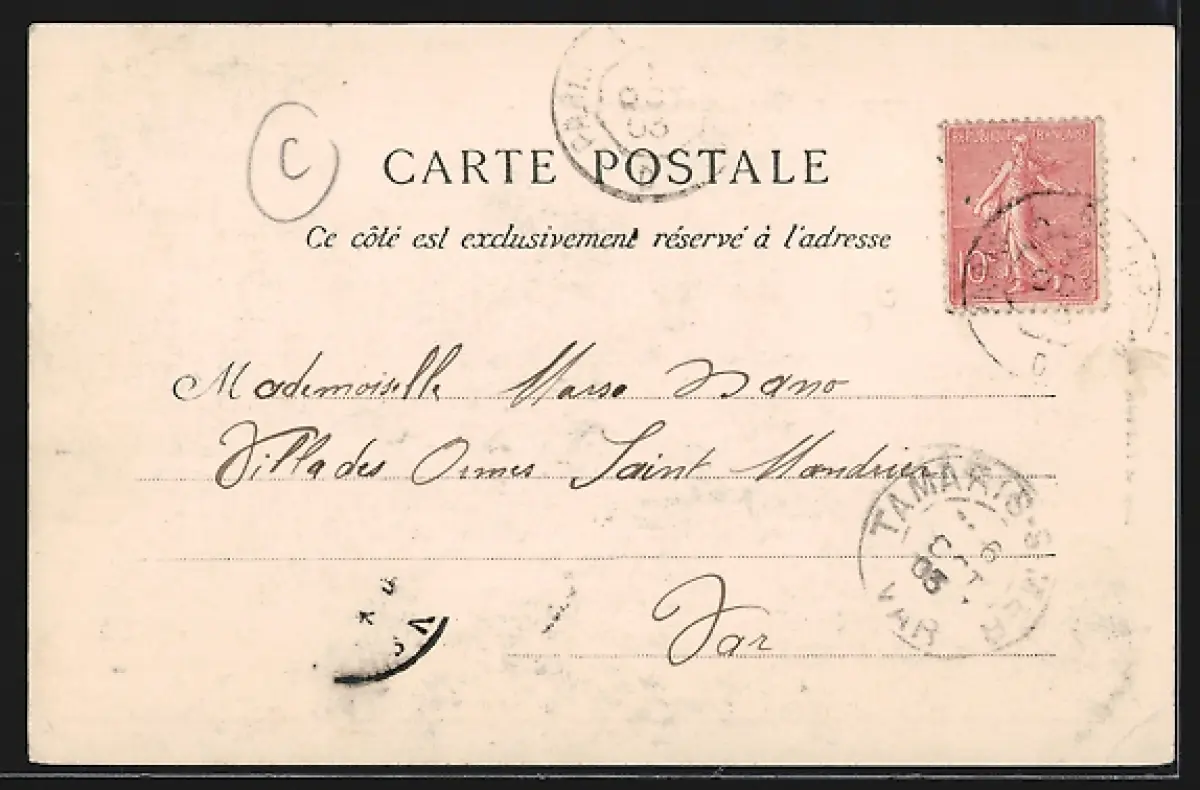 C
OCT
03
CARTE POSTALE
REPUBLIQUE FRANÇAISE
10
Ce côté est exclusivement réservé à l'adresse
Mademoiselle
Villa des Ormes Saint Mandrier
TAMARIS-S-MER
6
OCT
03
VAR
Var